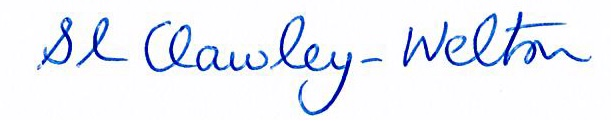 Sl Clawley-Welton